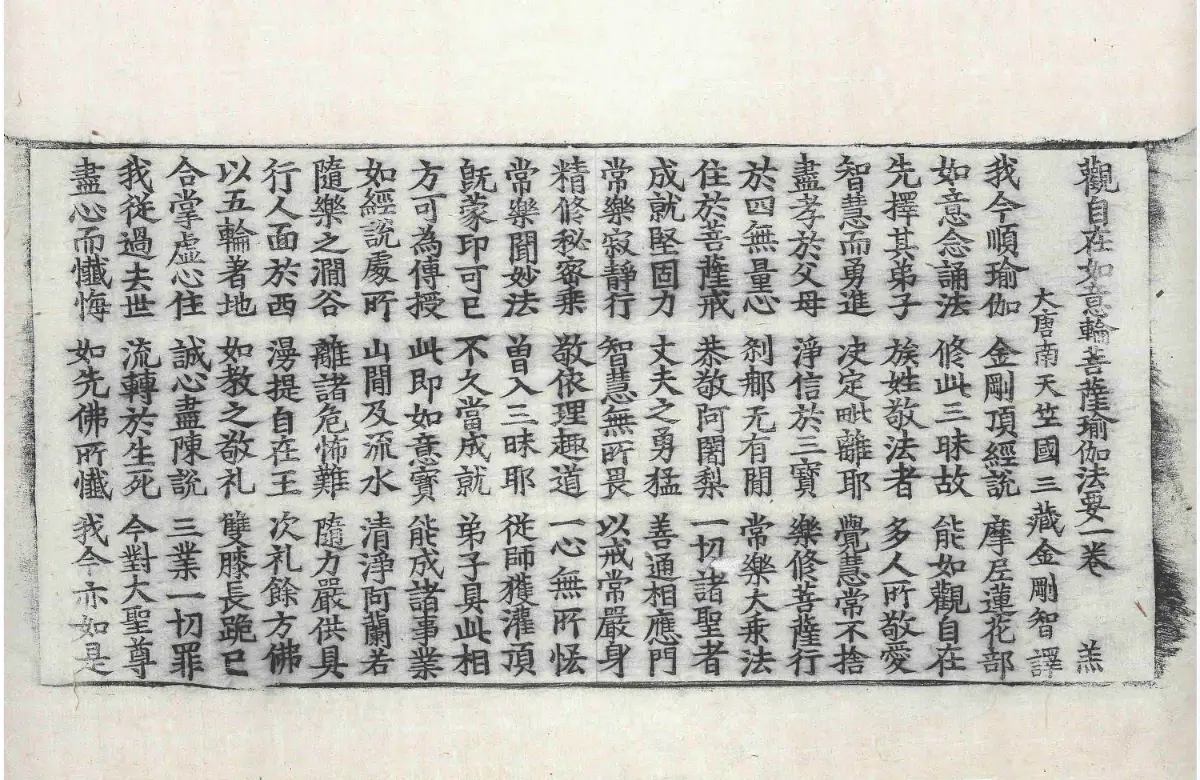 觀自在如意輪菩薩瑜伽法要一卷 羔
大唐南天竺國三藏金剛智譯
我今順瑜伽 金剛頂經說 摩𡰱蓮花部
如意念誦法 修此三昧故 能如觀自在
先擇其弟子 族姓敬法者 多人所敬愛
智慧而勇進 决定毗離耶 覺慧常不捨
盡孝於父母 淨信於三寶 樂修菩薩行
於四無量心 刹那无有閒 常樂大乘法
住於菩薩戒 恭敬阿闍梨 一切諸聖者
成就堅固力 丈夫之勇猛 善通相應門
常樂寂靜行 智慧無所畏 以戒常嚴身
精修秘密乘 敬依理趣道 一心無所悋
常樂聞妙法 曾入三昧耶 從師獲灌頂
旣蒙印可已 不久當成就 弟子具此相
方可為傳授 此即如意寶 能成諸事業
如經說處所 山間及流水 清淨阿蘭若
隨樂之澗谷 離諸危怖難 隨力嚴供具
行人面於西 漫提自在王 次礼餘方佛
以五輪著地 如教之敬礼 雙膝長跪已
合掌虛心住 誠心盡陳說 三業一切罪
我從過去世 流轉於生死 今對大聖尊
盡心而懺悔 如先佛所懺 我今亦如是